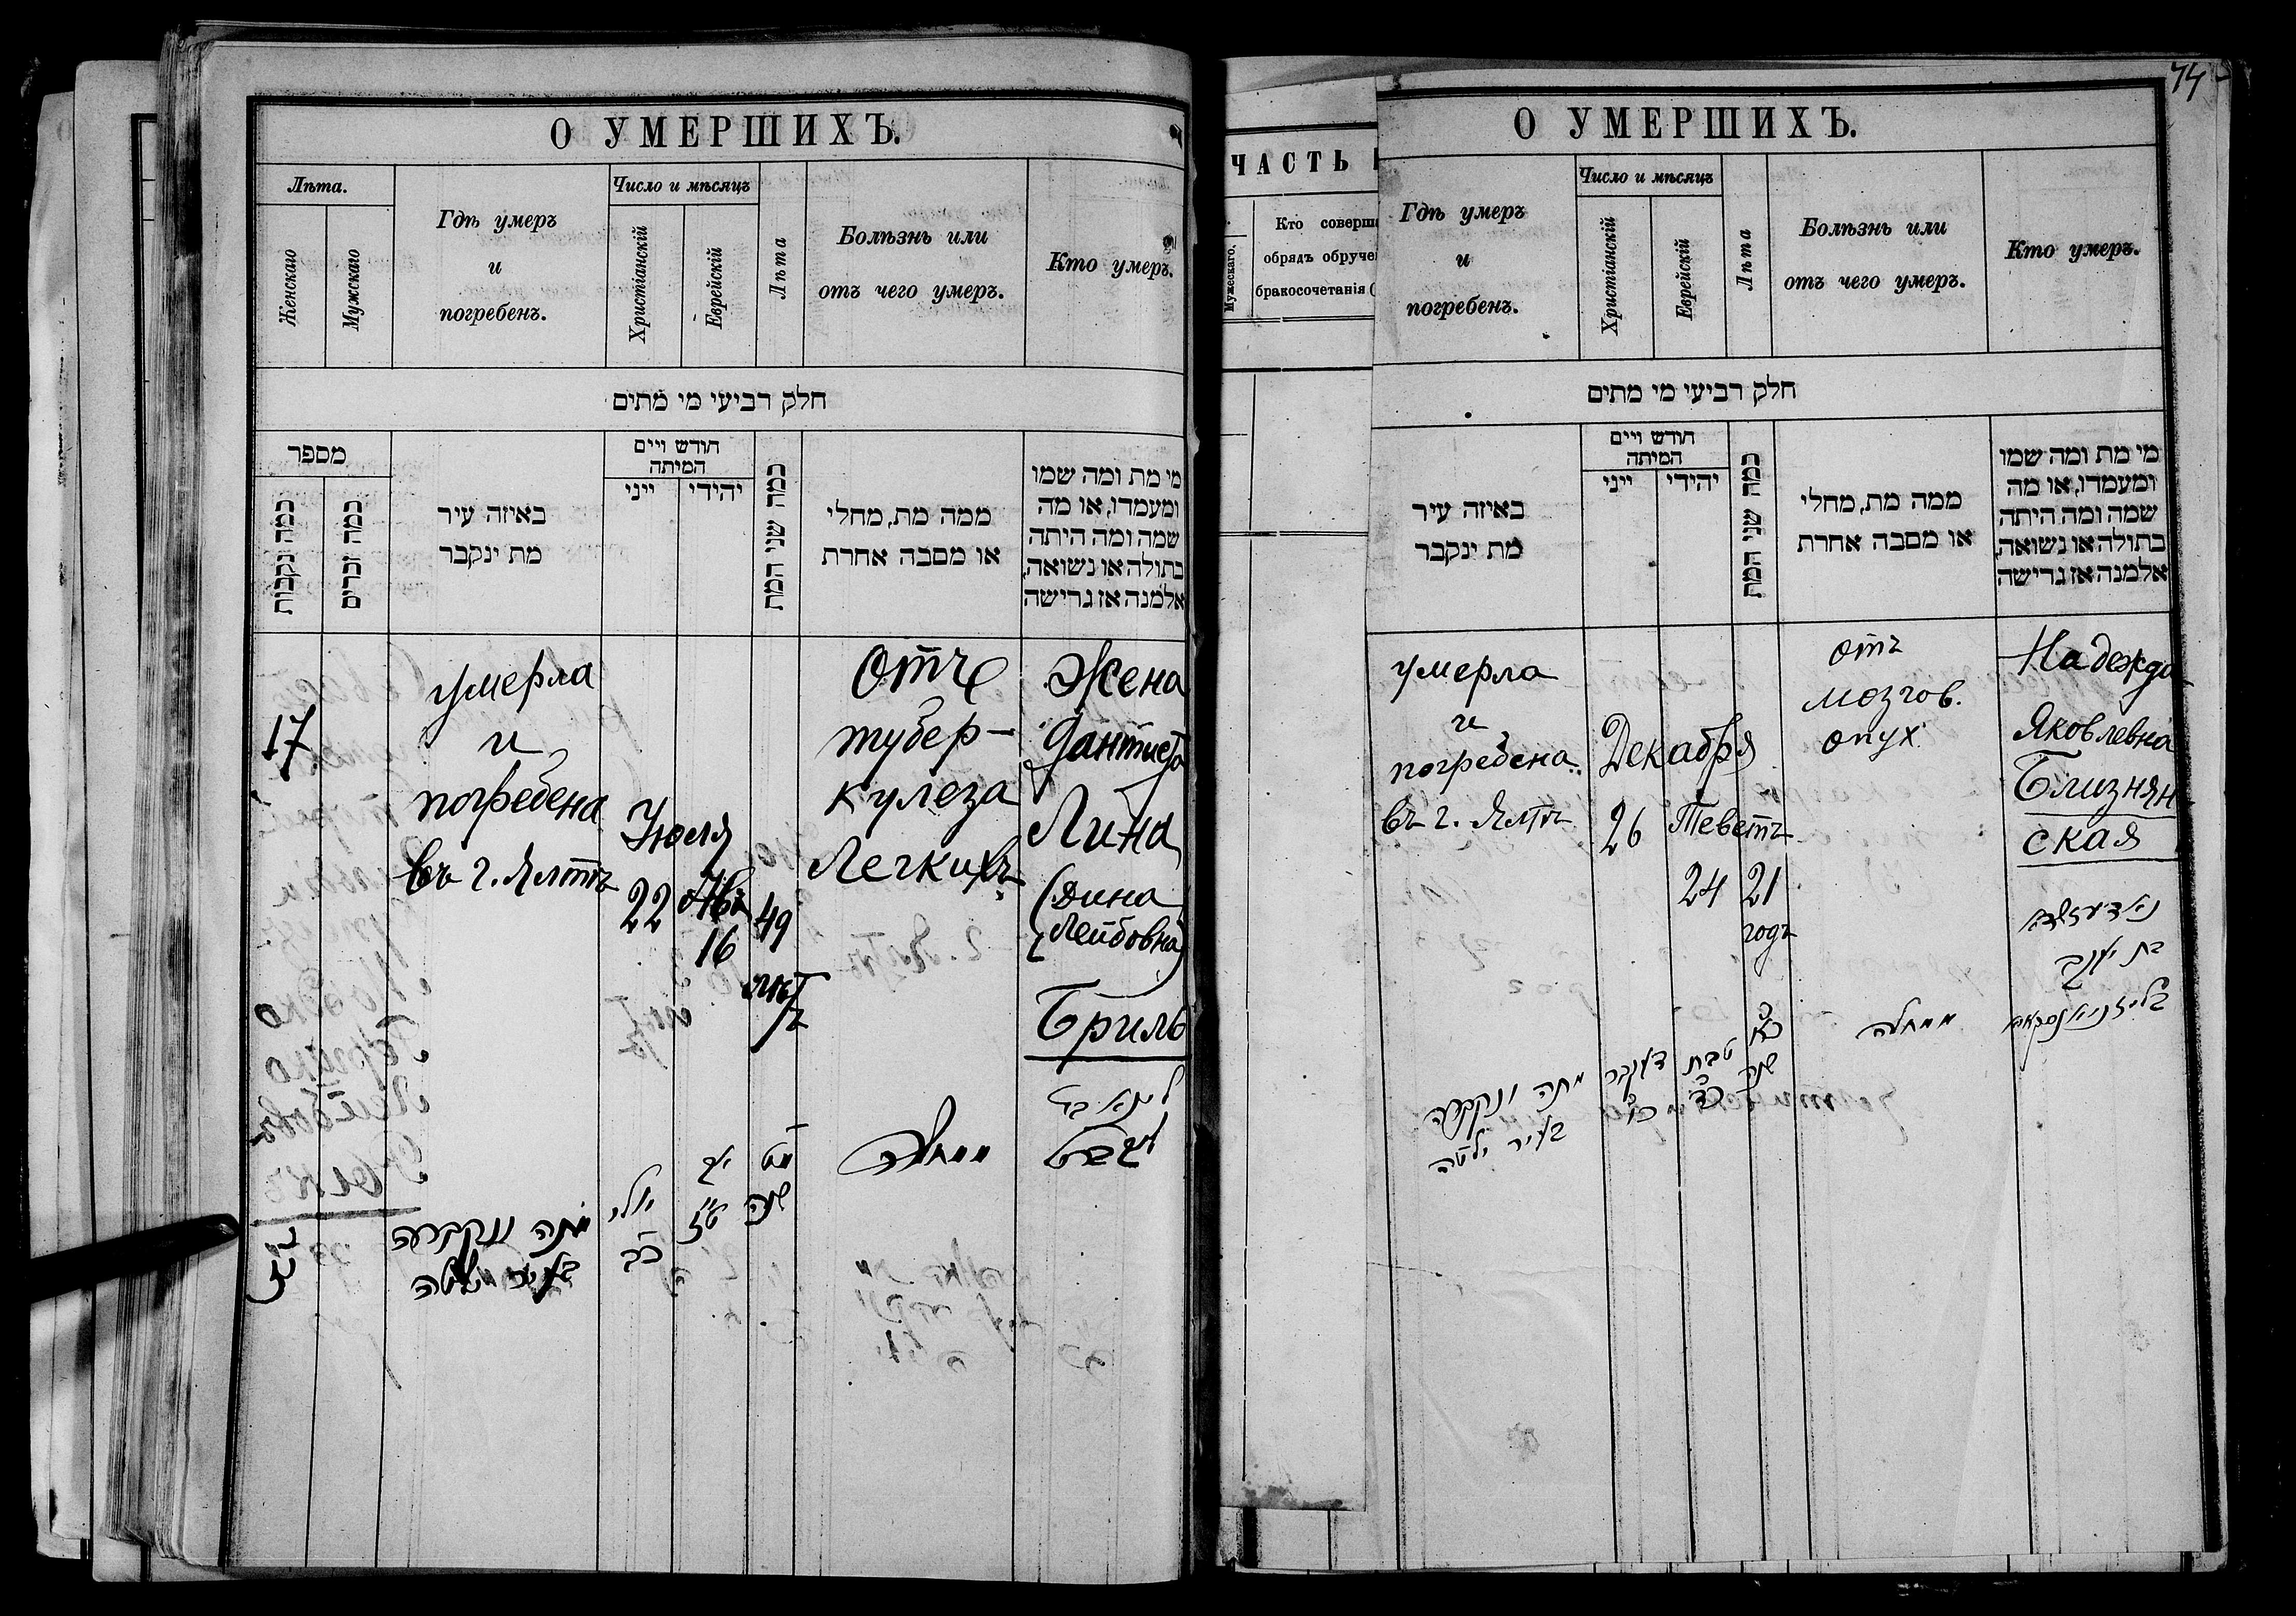 О УМЕРШИХЪ.
Лѣта.
Женскаго
Мужскаго
Гдѣ умеръ
и
погребенъ.
Число и мѣсяцъ
Христіанскій
Еврейскій
Лѣта
Болѣзнь или
отъ чего умеръ.
Кто умеръ.
חלק רביעי מי מתים
מספר
כמה נקבות
כמה זכרים
באיזה עיר
מת ינקבר
חודש ויים
המיתה
ייני
יהידי
כמה שני המת
ממה מת, מחלי
או מסבה אחרת
מי מת ומה שמו
ומעמדו, או מה
שמה ומה היתה
בתולה או נשואה,
אלמנה אז גרישה
17
умерла
и
погребена
въ г. Ялтѣ
Іюля
22
Ава
16
49
лѣтъ
Отъ
тубер-
кулеза
Легкихъ
Жена
Дантиста
Лина
(Дина
Лейбовна)
Бриль
מתה ונקברה
בעיר ילטה
יולי
כב
אב
ט״ז
מט
שנה
ממחלה
74
О УМЕРШИХЪ.
ЧАСТЬ
Мужескаго.
Кто соверш
обрядъ обруче
бракосочетанія (
Гдѣ умеръ
и
погребенъ.
Число и мѣсяцъ
Христіанскій
Еврейскій
Лѣта
Болѣзнь или
отъ чего умеръ.
Кто умеръ.
חלק רביעי מי מתים
באיזה עיר
מת ינקבר
חודש ויים
המיתה
ייני
יהידי
כמה שני המת
ממה מת, מחלי
או מסבה אחרת
מי מת ומה שמו
ומעמדו, או מה
שמה ומה היתה
בתולה או נשואה,
אלמנה אז גרישה
умерла
и
погребена
въ г. Ялтѣ
Декабря
26
Теветъ
24
21
годъ
отъ
мозгов.
опух.
Надежда
Яковлевна
Близнян
ская
נאדיעזשדא
בת יעקב
בליזניאנסקאא
מתה ונקברה
בעיר ילטה
דעקבר
כו
טבת
כד
כא
שנה
ממחלה